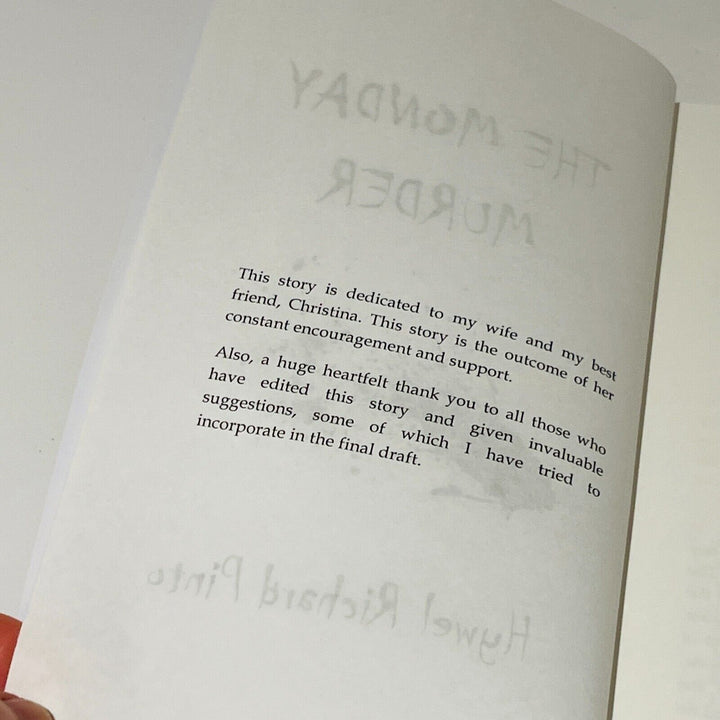 THE MONDAY
MURDER
This story is dedicated to my wife and my best
friend, Christina. This story is the outcome of her
constant encouragement and support.
Also, a huge heartfelt thank you to all those who
have edited this story and given invaluable
suggestions, some of which I have tried to
incorporate in the final draft.
Hywel Richard Pinto